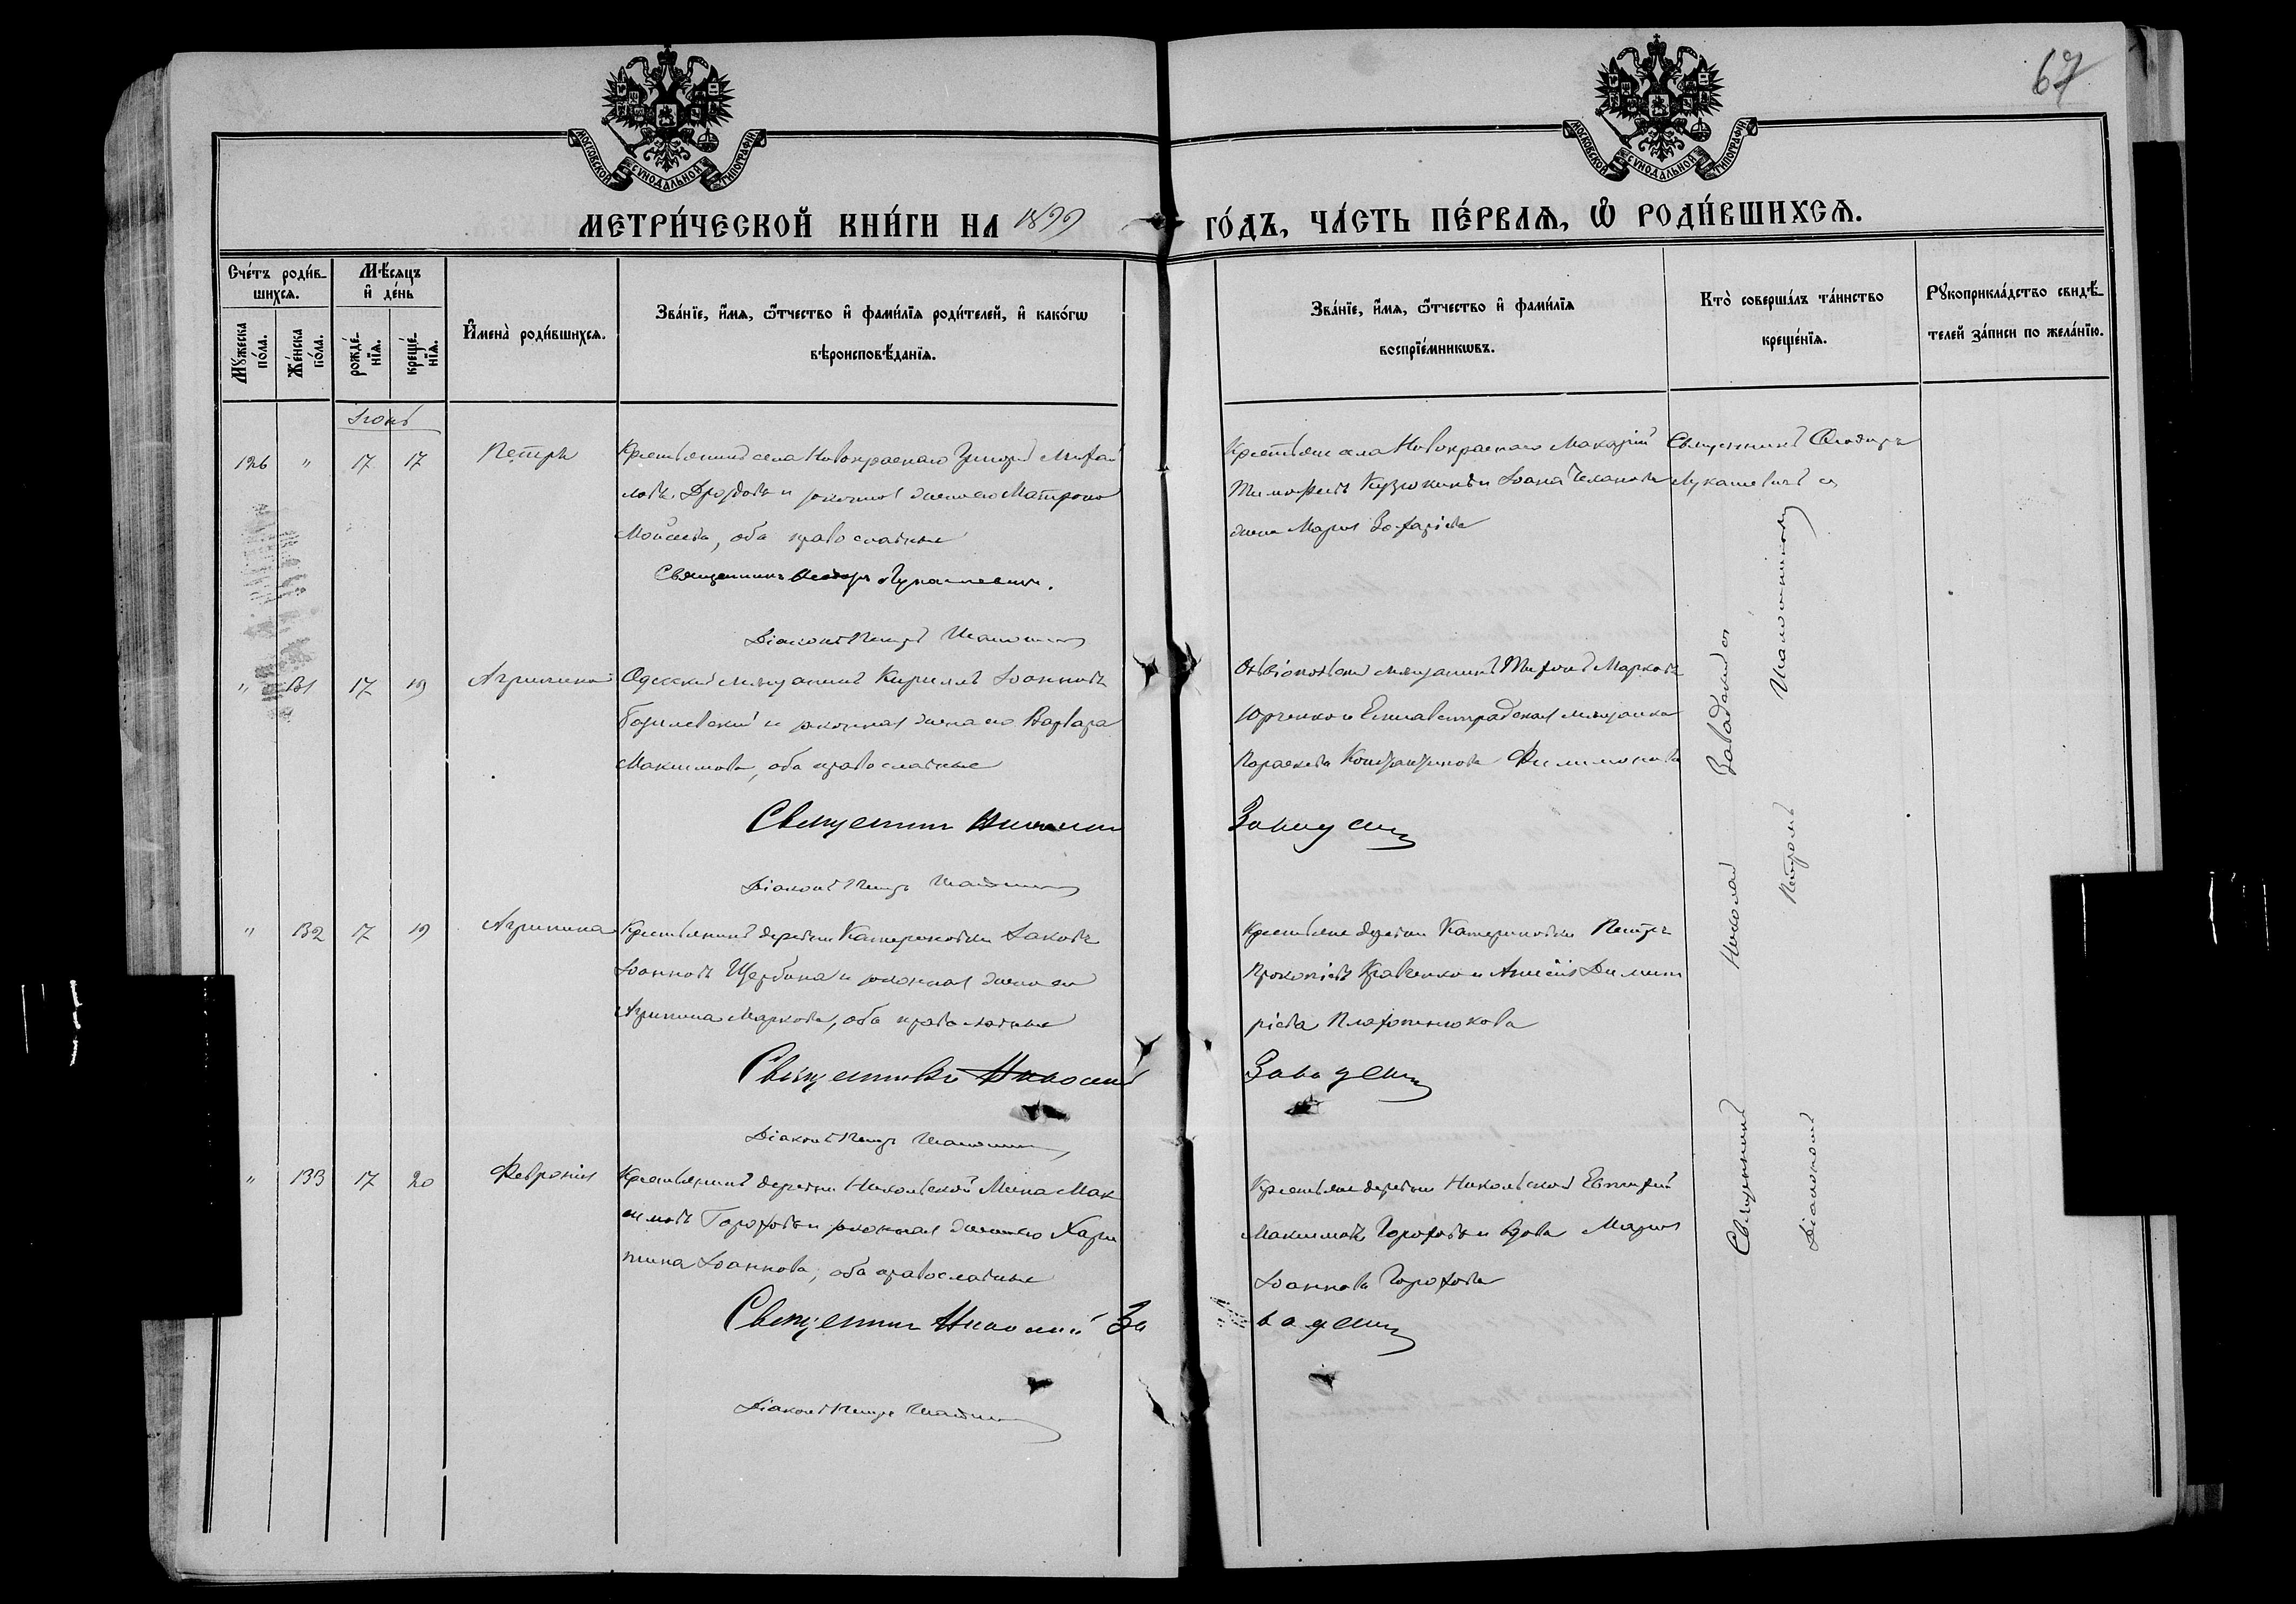 67
МОСКОВСКОЙ СѴНОДАЛЬНОЙ ТИПОГРАФІИ
МОСКОВСКОЙ СѴНОДАЛЬНОЙ ТИПОГРАФІИ
МЕТРИ́ЧЕСКОЙ КНИ́ГИ НА 1899 ГО́ДЪ, ЧА́СТЬ ПЕ́РВАЯ, Ѡ҆ РОДИ́ВШИХСЯ.
Сче́тъ роди́в-
шихся.
Му́жеска по́ла.
Же́нска по́ла.
Мѣ́сяцъ
и҆ де́нь
рожде́-
нія.
креще́-
нія.
И҆мена̀ роди́вшихся.
Зва́ніе, и҆́мя, ѻ҆́тчество и҆ фами́лія роди́телей, и҆ како́гѡ
вѣроисповѣ́данія.
Зва́ніе, и҆́мя, ѻ҆́тчество и҆ фами́лія
воспріе́мникѡвъ.
Кто̀ соверша́лъ та́инство
креще́нія.
Рукоприкла́дство свидѣ́-
телей за́писи по жела́нію.
Іюнь
126 " 17 17 Петръ
Крестьянинъ села Новокраснаго Григорій Михаи
ловъ Дроздовъ и законная жена его Матрона
Моисеева, оба православные
Священникъ Лукашевичъ.
Діаконъ Петръ
Крестьяне села Новокраснаго Макарій
Тимофеевъ Кузюкинъ и Іоанна
жена Марія Захаріева
Священникъ Ѳеодоръ
Лукашевичъ съ
" 131 17 19 Агрипина
Одесскій мѣщанинъ Кириллъ Іоанновъ
и законная жена его Варвара
Максимова, оба православные
Священникъ Николай Завадскій
Діаконъ Петръ
мѣщанинъ Тихонъ Марковъ
Юрченко и Елисаветградская мѣщанка
Параскева Константинова Филимонова
" 132 17 19 Агрипина
Крестьянинъ деревни Катериновки Іаковъ
Іоанновъ Щербина и законная жена его
Агрипина Маркова, оба православные
Священникъ Николай Завадскій
Діаконъ Петръ
Крестьяне деревни Катериновки Петръ
Прокопіевъ Кравченко и Анисія Димит
ріева Платонюкова
" 133 17 20 Февронія
Крестьянинъ деревни Никольской Мина Мак
симовъ Гороховъ и законная жена его Хари
тина Іоаннова, оба православные
Священникъ Николай Завадскій
Діаконъ Петръ
Крестьяне деревни Никольской Евтихій
Максимовъ Гороховъ и вдова Марія
Іоаннова Горохова
Священникъ Николай Завадскій съ
Діакономъ Петромъ